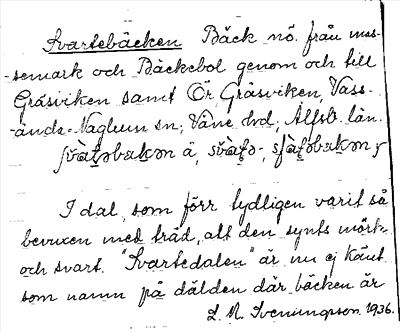 Svartebäcken Bäck nö. från mss-
-semark och Bäckebol genom och till
Gräsviken samt Ör, Gräsviken, Vass-
-ända-Naglum sn, Väne hd, Älfsb. län.
I dal, som förr tydligen varit så
bevuxen med träd, att den synts mörk
och svart. "Svartedalen" är nu ej känt
som namn på dälden där bäcken är
Sveningsson 1936.